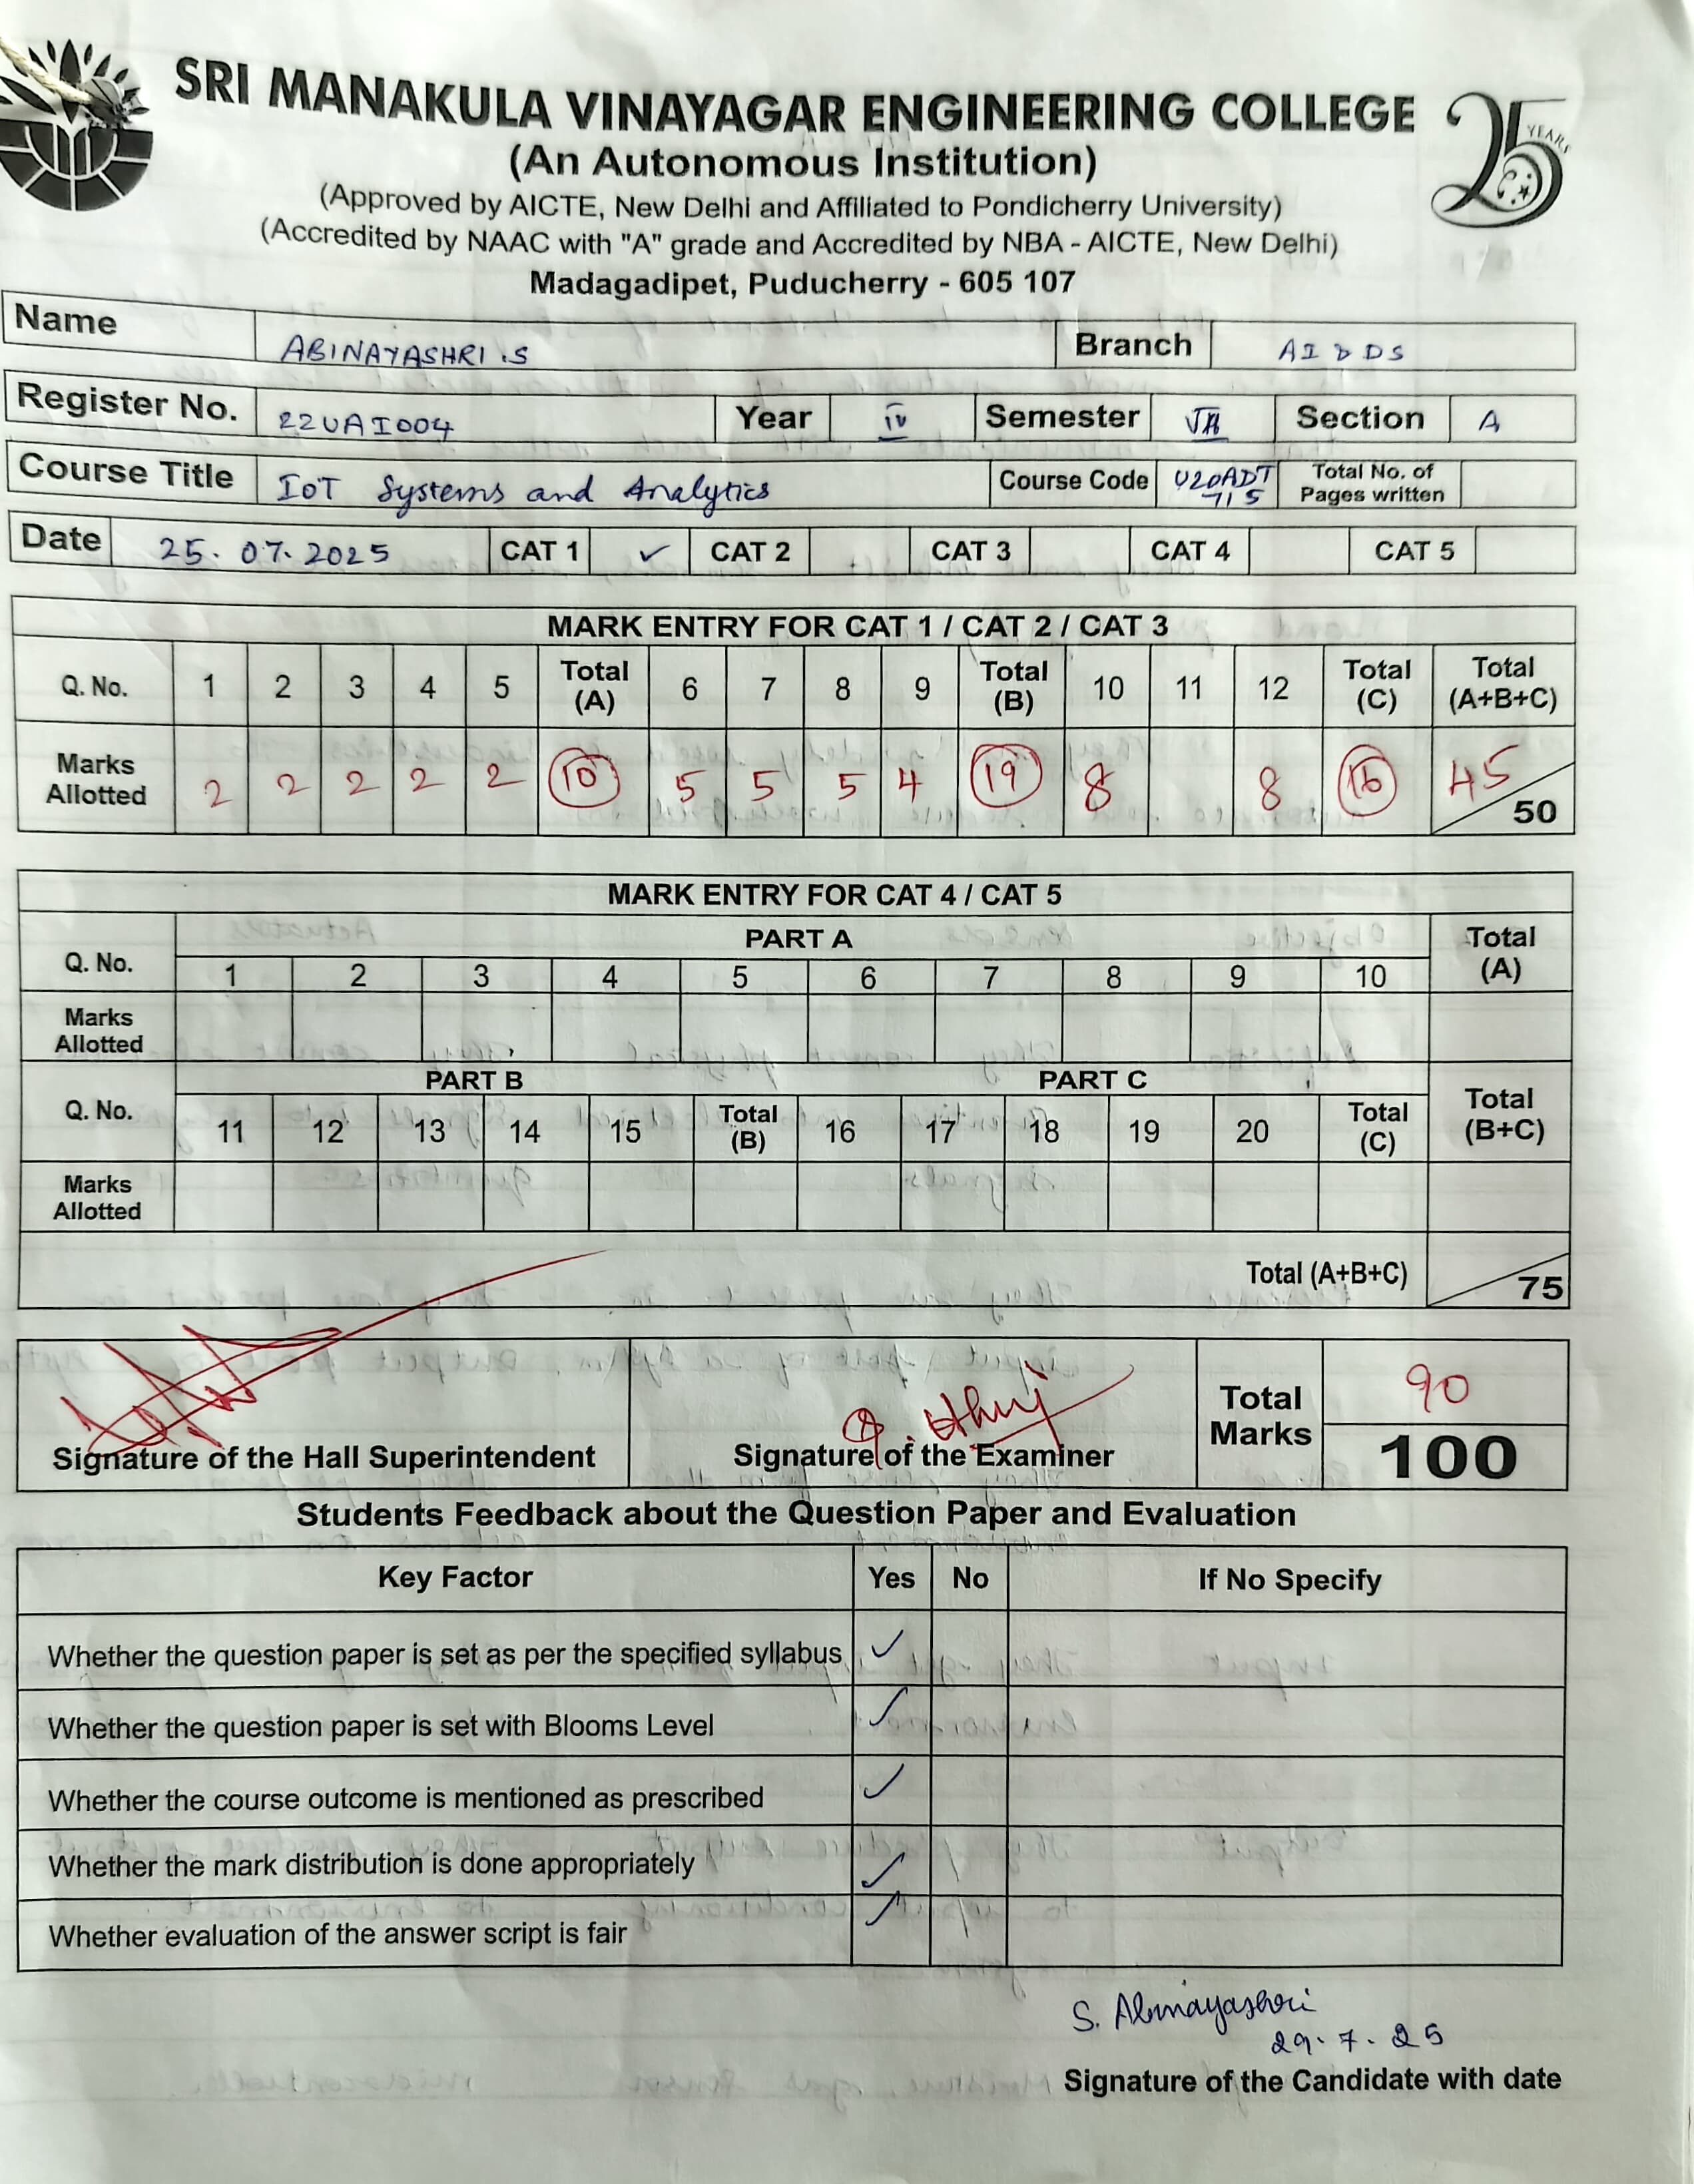 SRI MANAKULA VINAYAGAR ENGINEERING COLLEGE
25 YEARS
(An Autonomous Institution)
(Approved by AICTE, New Delhi and Affiliated to Pondicherry University)
(Accredited by NAAC with "A" grade and Accredited by NBA - AICTE, New Delhi)
Madagadipet, Puducherry - 605 107
Name ABINAYASHRI .S Branch AI & DS
Register No. 22UAI004 Year IV Semester VII Section A
Course Title IoT Systems and Analytics Course Code U20ADT 715 Total No. of Pages written
Date 25.07.2025 CAT 1 ✓ CAT 2 CAT 3 CAT 4 CAT 5
MARK ENTRY FOR CAT 1 / CAT 2 / CAT 3
Q. No. 1 2 3 4 5 Total (A) 6 7 8 9 Total (B) 10 11 12 Total (C) Total (A+B+C)
Marks Allotted 2 2 2 2 2 10 5 5 5 4 19 8 8 16 45/50
MARK ENTRY FOR CAT 4 / CAT 5
PART A
Q. No. 1 2 3 4 5 6 7 8 9 10 Total (A)
Marks Allotted
PART B PART C
Q. No. 11 12 13 14 15 Total (B) 16 17 18 19 20 Total (C) Total (B+C)
Marks Allotted
Total (A+B+C) /75
Signature of the Hall Superintendent Signature of the Examiner Total Marks 90
100
Students Feedback about the Question Paper and Evaluation
Key Factor Yes No If No Specify
Whether the question paper is set as per the specified syllabus ✓
Whether the question paper is set with Blooms Level ✓
Whether the course outcome is mentioned as prescribed ✓
Whether the mark distribution is done appropriately ✓
Whether evaluation of the answer script is fair ✓
S. Abinayashri
29.7.25
Signature of the Candidate with date